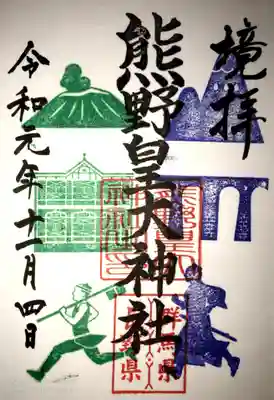 境拝
熊野皇大神社
令和元年十一月四日
群馬県